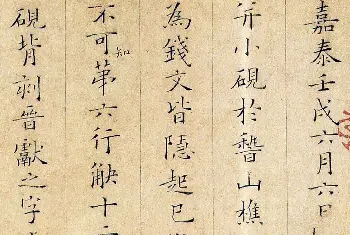 嘉泰壬戌六月六日
并小硯於稽山樵
為錢文皆隱起已
不可知苐六行缺十
硯背刻晉獻之字